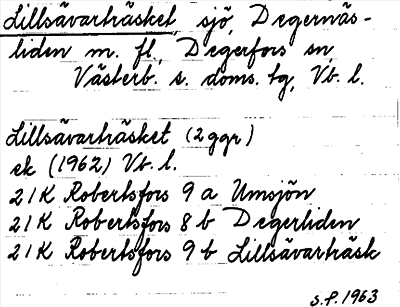 Lillsävarträsket, sjö, Degernäs-
liden m. fl., Degerfors sn,
Västerb. s. doms. tg, Vb. l.
Lillsävarträsket (2 ggr)
ek (1962) Vb. l.
21K Robertsfors 9 a Umsjön
21K Robertsfors 8 b Degerliden
21K Robertsfors 9 b Lillsävarträsk
S.P. 1963